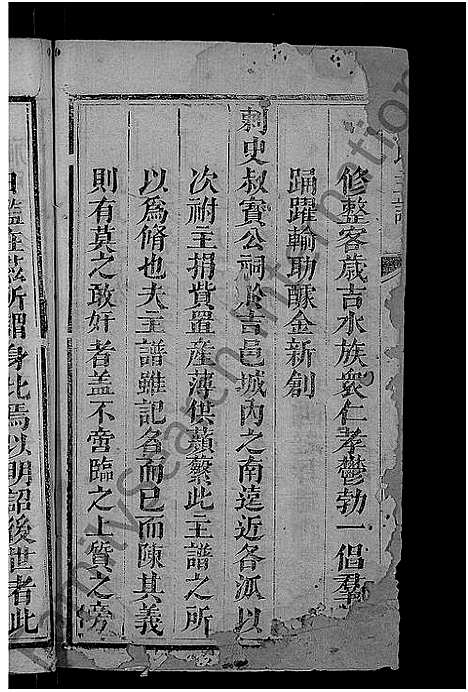 修整客歲吉水族衆仁孝鬱勃一倡羣
踴躍輸助醵金新創
刺史叔寳公祠於吉邑城內之南遠近各派以
次祔主捐貲置產薄供蘋蘩此主譜之所
以爲脩也夫主譜雖記名而已而陳其義
則有莫之敢奸者盖不啻臨之上質之旁
鑑在茲所謂身比焉以明詔後世者此
主譜
FamilySearch International